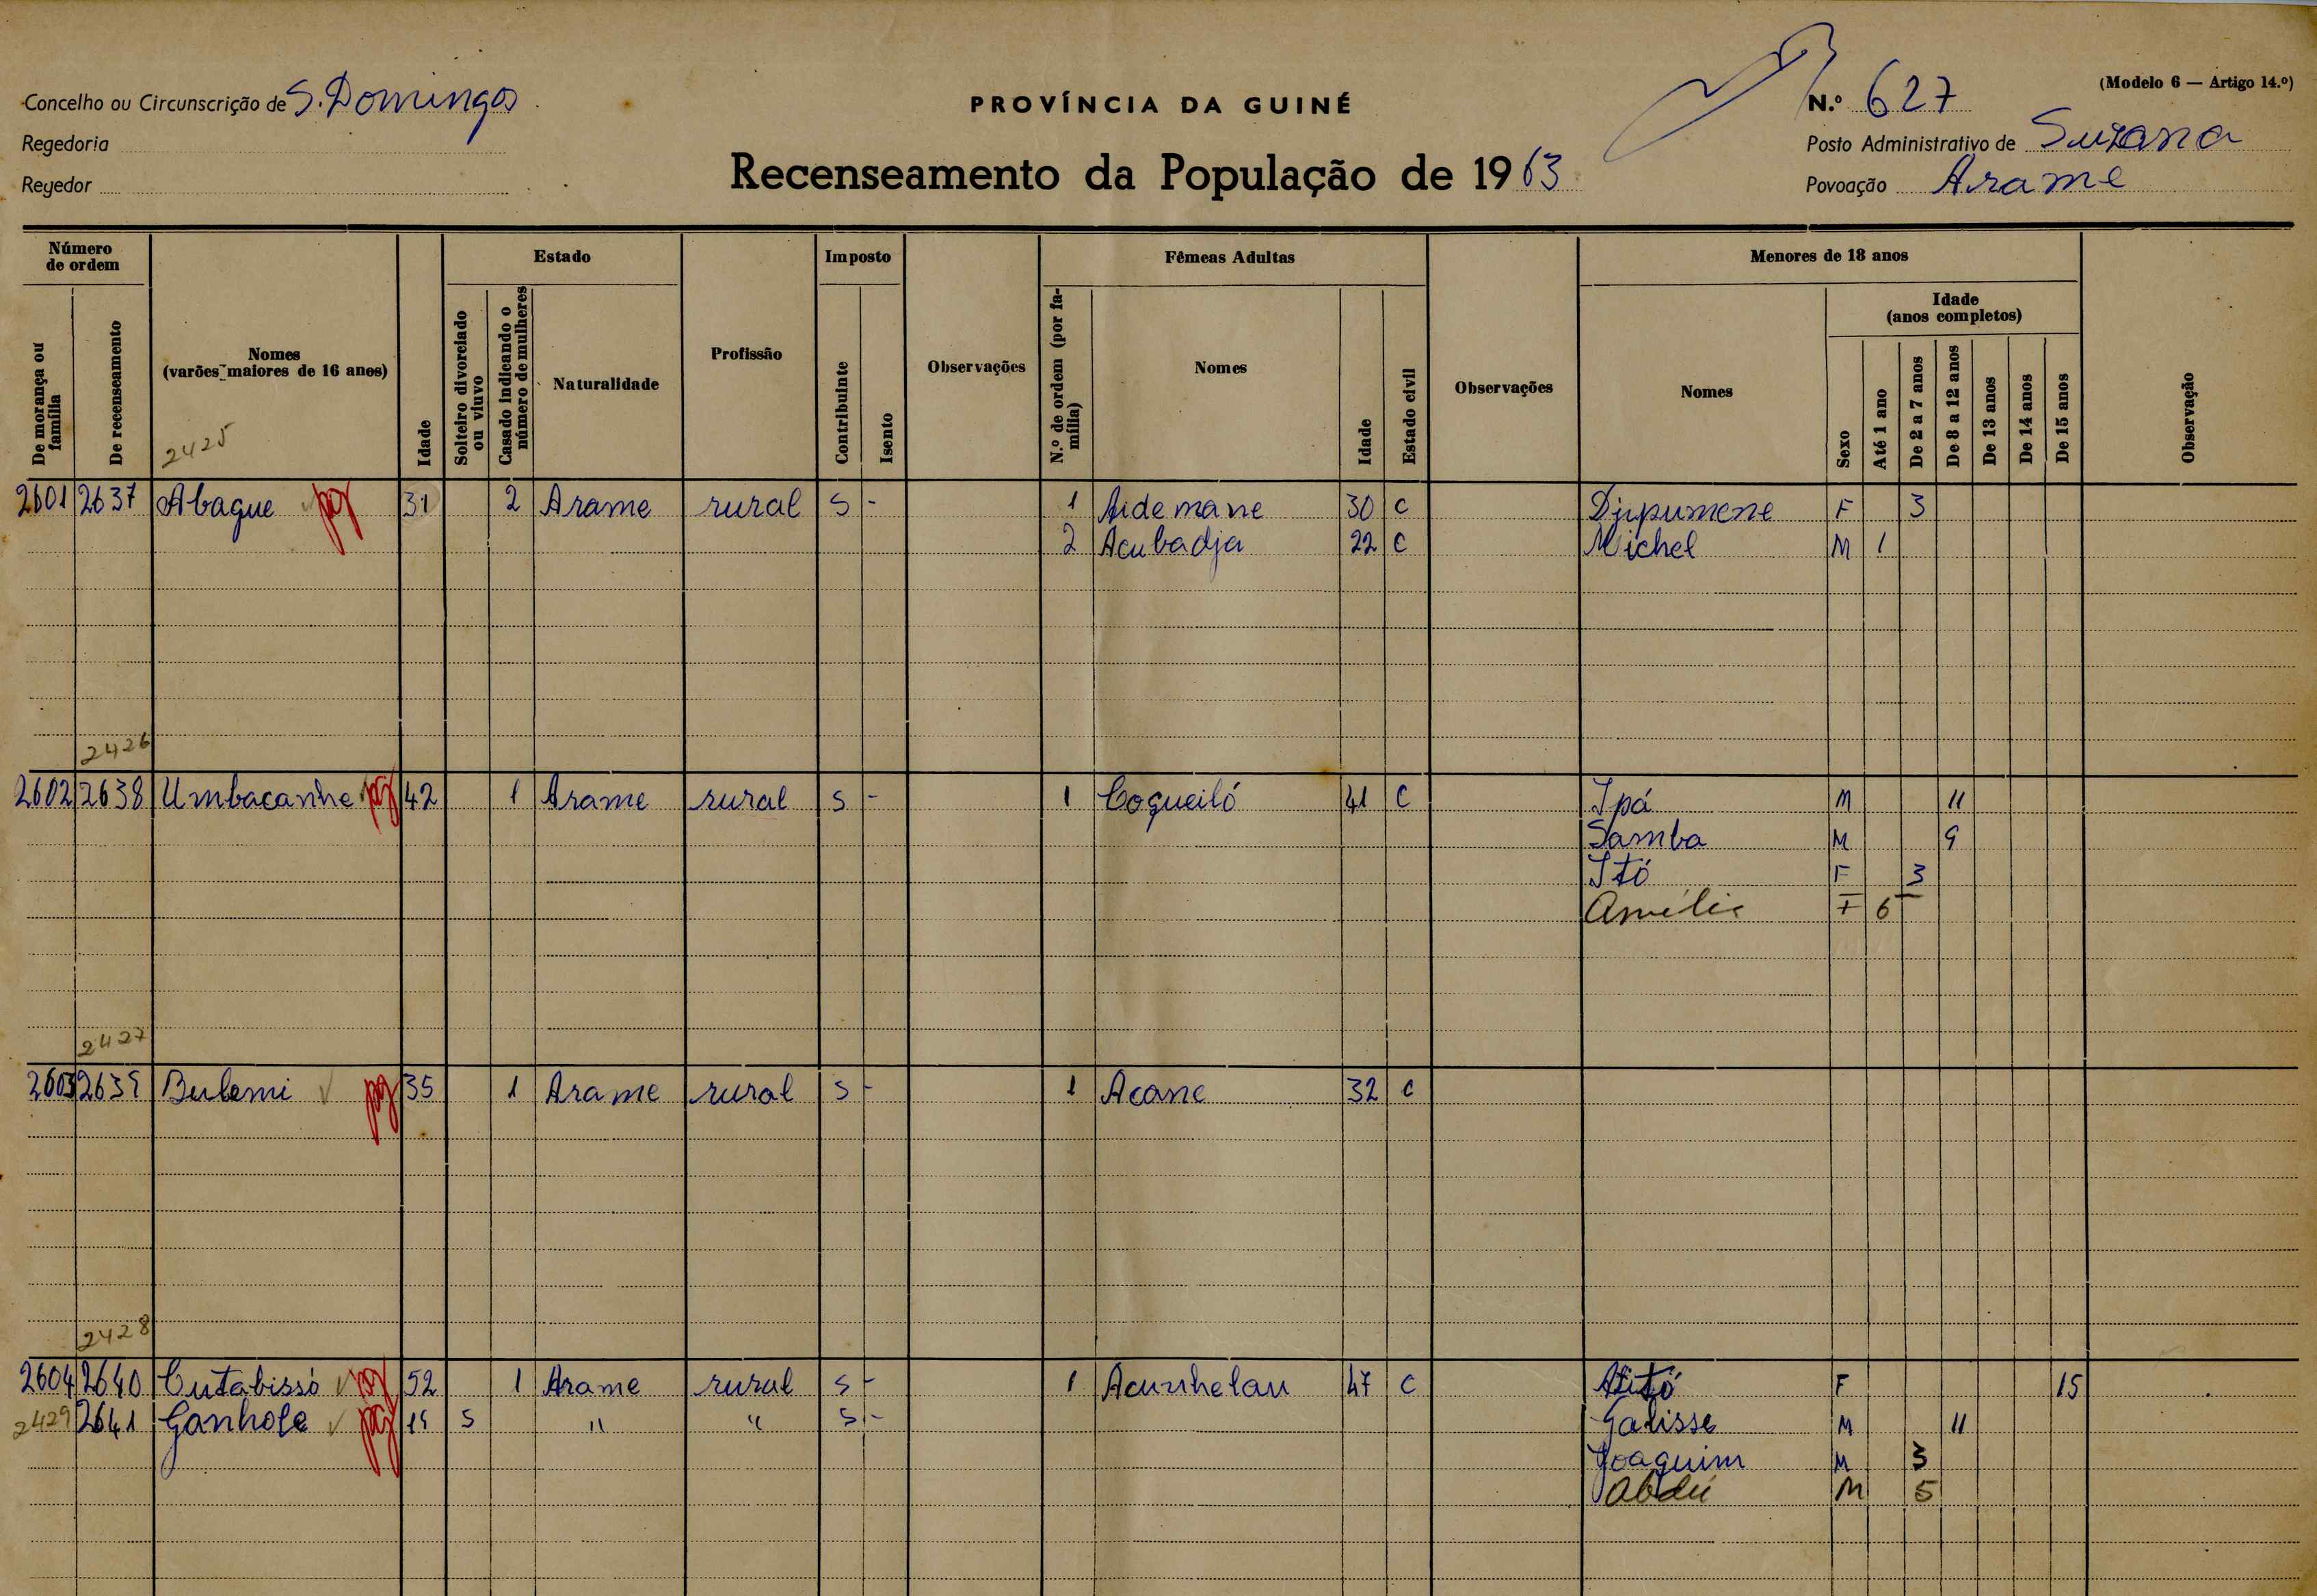 (Modelo 6 — Artigo 14.º)
Concelho ou Circunscrição de S. Domingos
PROVÍNCIA DA GUINÉ
N.º 627
Regedoria
Posto Administrativo de Suzana
Regedor
Recenseamento da População de 1963
Povoação Arame
Número de ordem
Estado
Imposto
Fêmeas Adultas
Menores de 18 anos
De morança ou família
De recenseamento
Nomes (varões maiores de 16 anos)
Idade
Solteiro divorciado ou viuvo
Casado indicando o número de mulheres
Naturalidade
Profissão
Contribuinte
Isento
Observações
N.º de ordem (por família)
Nomes
Idade
Estado civil
Observações
Nomes
Idade (anos completos)
Sexo
Até 1 ano
De 2 a 7 anos
De 8 a 12 anos
De 13 anos
De 14 anos
De 15 anos
Observação
2425
2601 2637 Abague pg 31 2 Arame rural S - 1 Aidemane 30 C Djipumene F 3
2 Acubadja 22 C Michel M 1
2426
2602 2638 Umbacanhe pg 42 1 Arame rural S - 1 Coqueiló 41 C Ipá M 11
Samba M 9
Itó F 3
Amélia F 6
2427
2603 2639 Bulemi pg 35 1 Arame rural S - 1 Acane 32 C
2428
2604 2640 Cutabissó pg 52 1 Arame rural S - 1 Acunhelau 47 C F 15
2429 2641 Ganhole pg 19 S " " S - Galisse M 11
Joaquim M 3
Abdú M 5